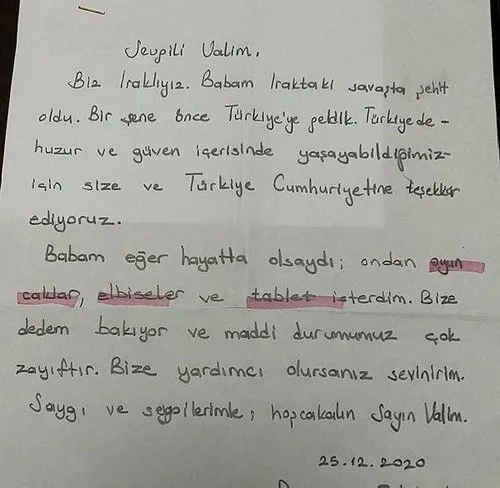 Sevgili Valim,
Biz Iraklıyız. Babam Iraktaki savaşta şehit
oldu. Bir sene önce Türkiye'ye geldik. Türkiyede-
huzur ve güven içerisinde yaşayabildiğimiz-
için size ve Türkiye Cumhuriyetine teşekkür
ediyoruz.
Babam eğer hayatta olsaydı; ondan oyun
caklar, elbiseler ve tablet isterdim. Bize
dedem bakıyor ve maddi durumumuz çok
zayıftır. Bize yardımcı olursanız sevinirim.
Saygı ve sevgilerimle; hoşcakalın Sayın Valim.
25.12.2020